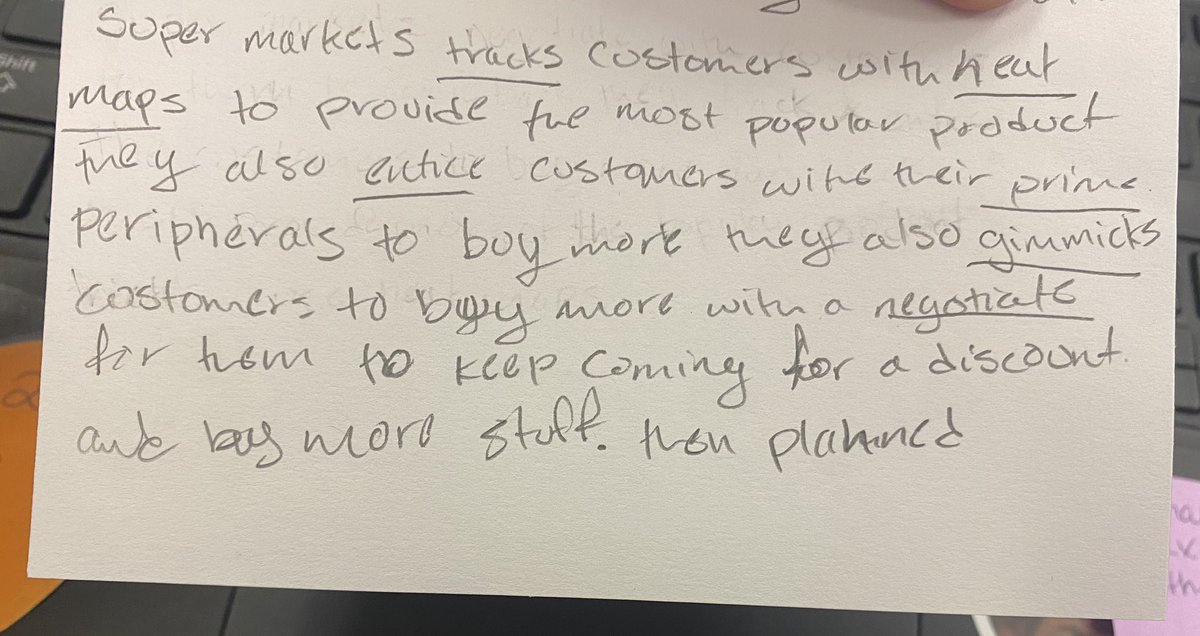 Super markets tracks customers with heat
maps to provide the most popular product
they also entice customers with their prime
peripherals to buy more they also gimmicks
customers to buy more with a negotiate
for them to keep coming for a discount.
and buy more stuff. then planned